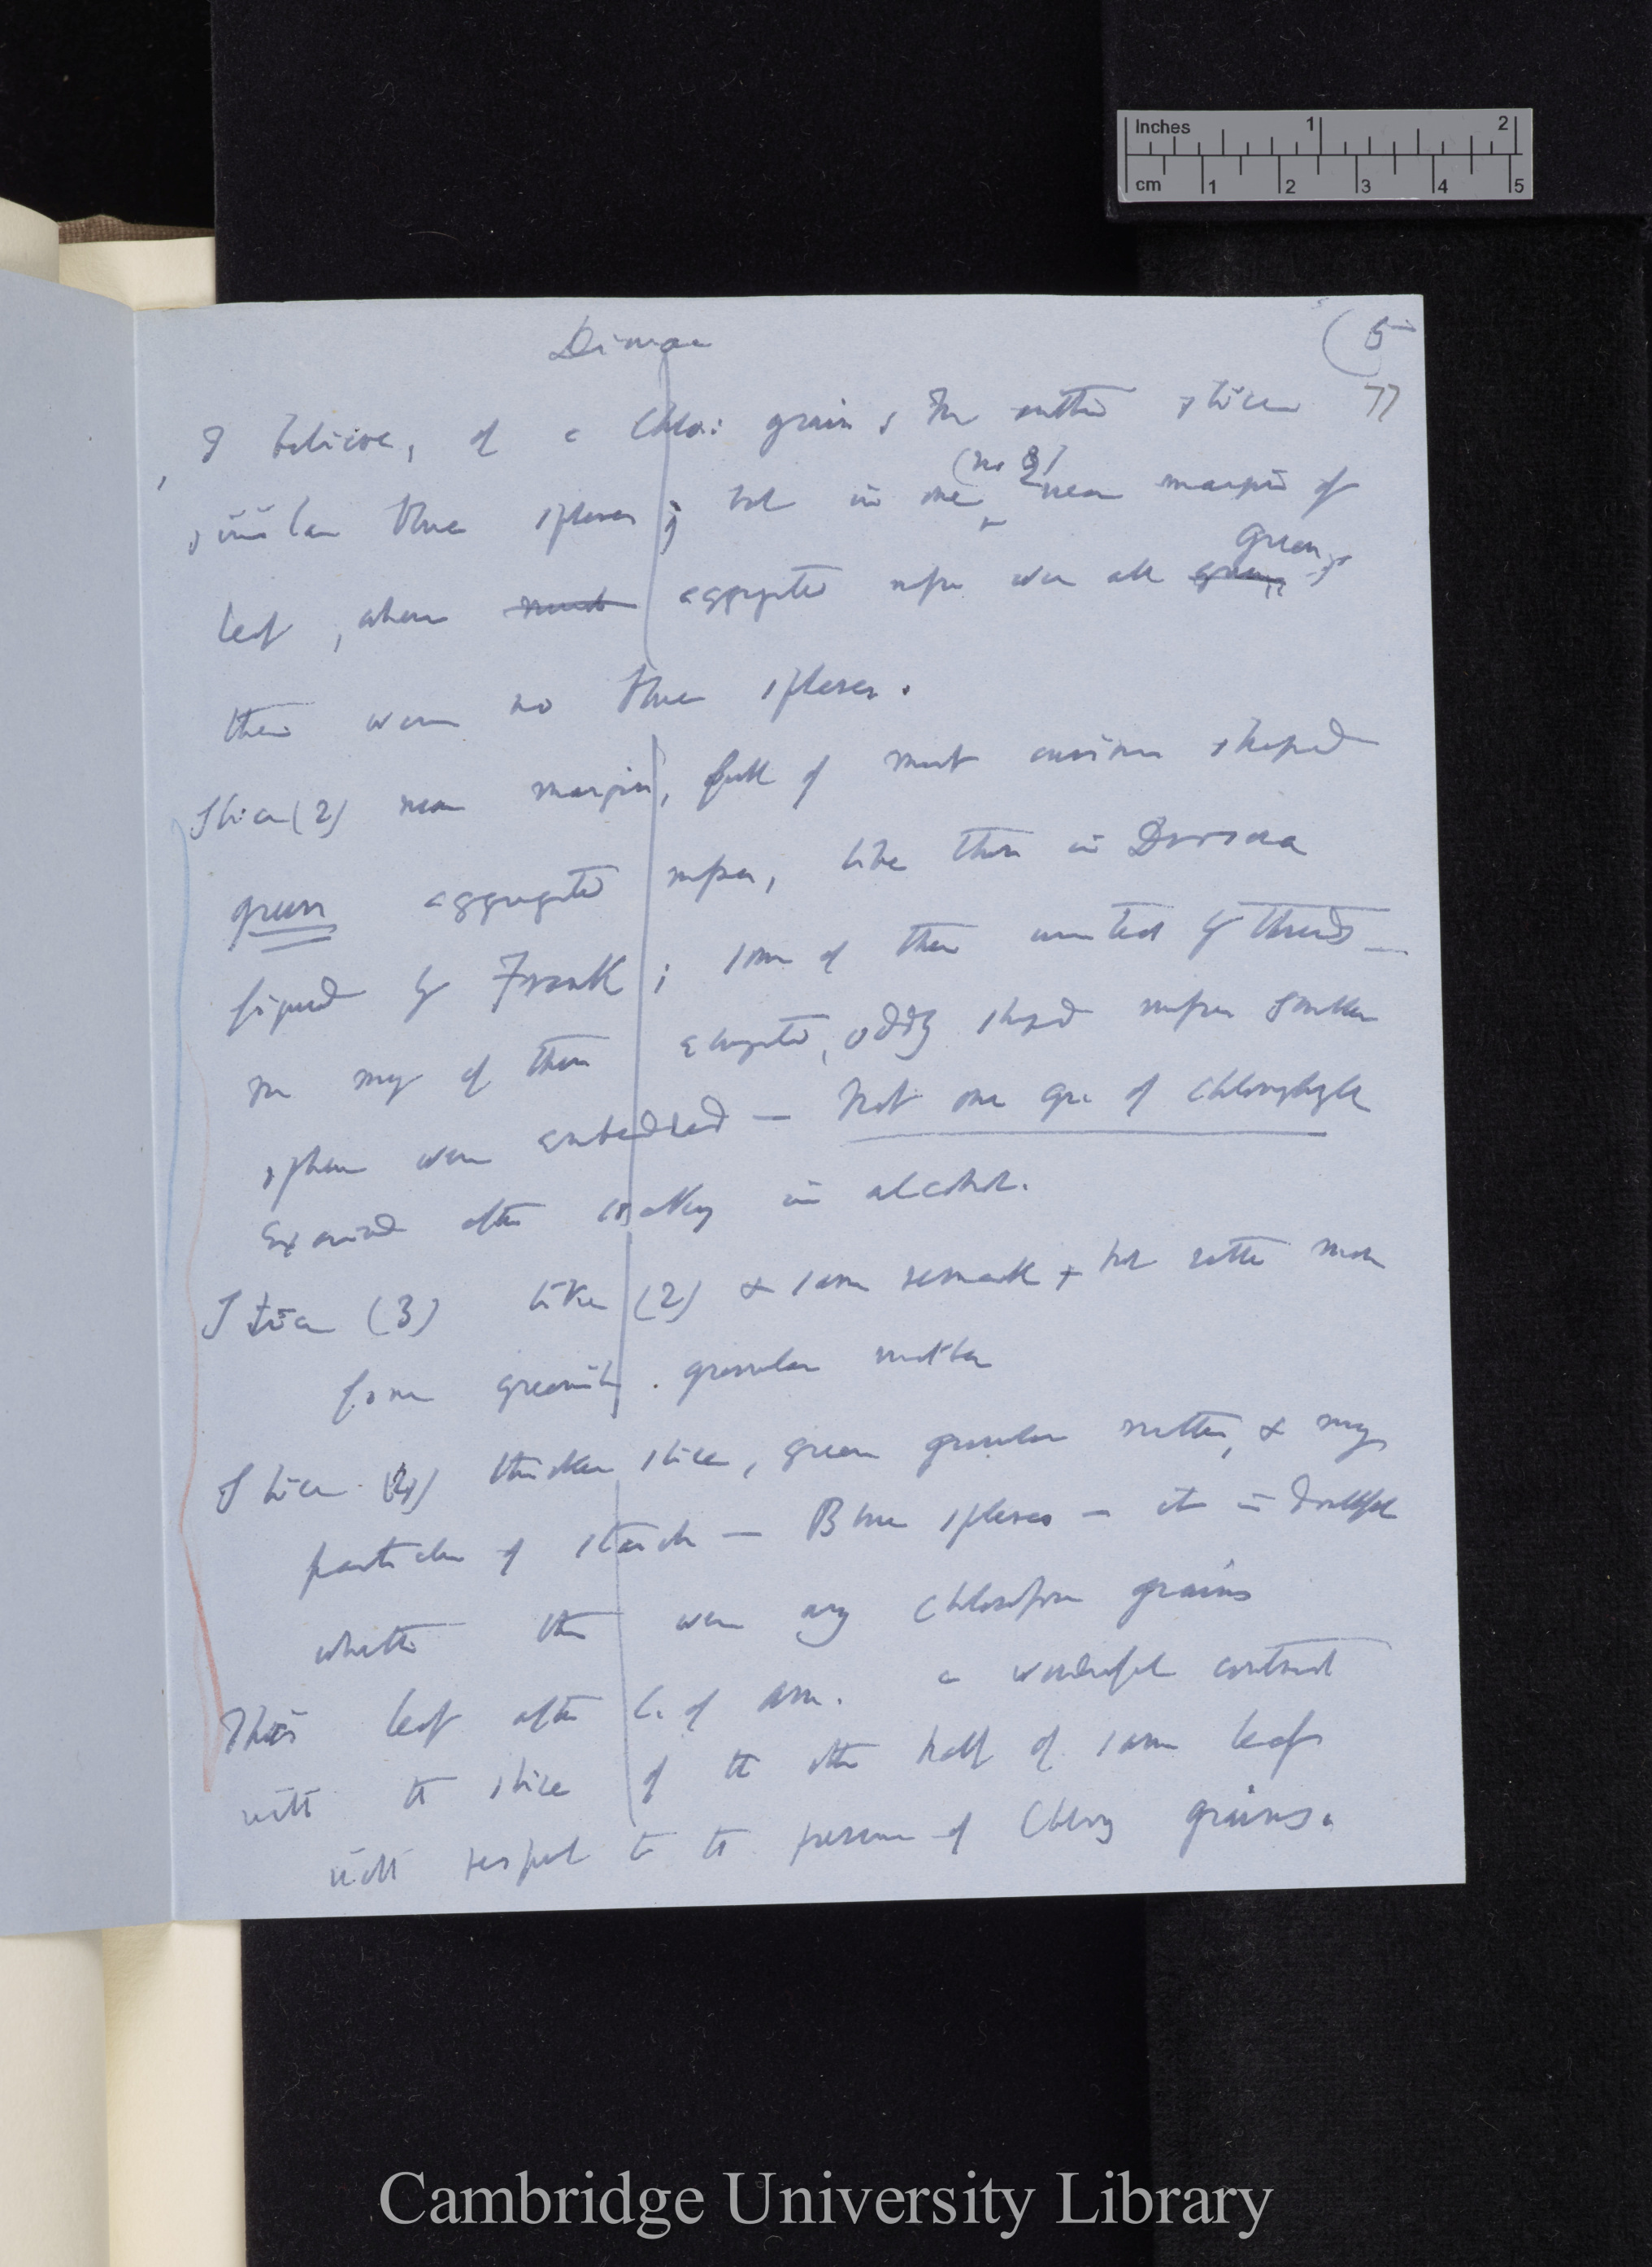 Inches 1 2
cm 1 2 3 4 5
Dionaea
(5
77
I believe, of a Chlo: grain, In another slice
(no 2)
similar blue spheres; but in one near margin of
green,
leaf, where aggregated masses were all
there were no blue spheres.
Slice (2) near margin, full of most curious shaped
green aggregated masses, like those in Drosera
figured by Frank; some of them united by threads —
In many of these elongated, oddly shaped masses smaller
spheres were embedded — Not one gr. of chlorophyll
Examined after soaking in alcohol.
Slice (3) like (2) & same remark + but rather more
fine greenish granular matter
Slice (4) thicker slice, green granular matter, & many
particles of starch — Blue spheres — it is doubtful
whether there were any chlorophyll grains
This leaf after C. of Am. a wonderful contrast
with the slice of the other half of same leaf
with respect to the presence of Chloro grains.
Cambridge University Library